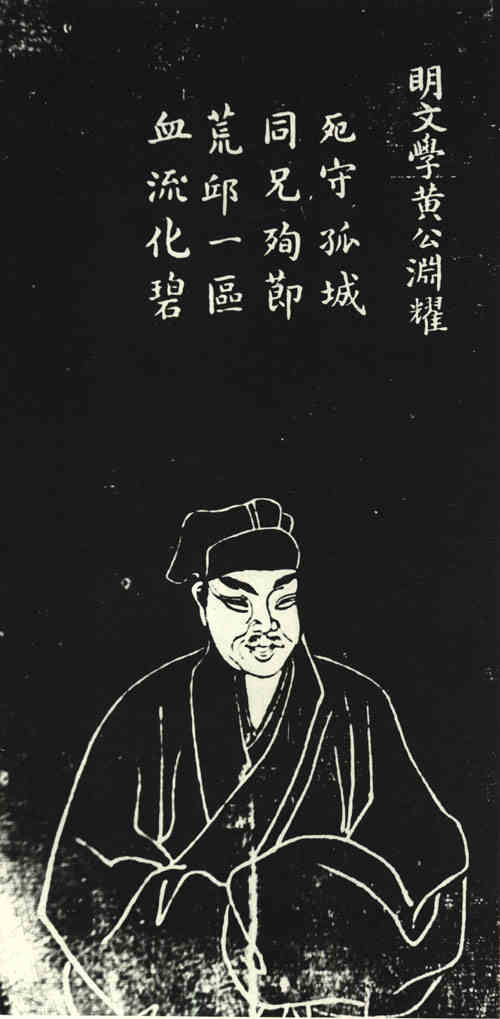 明文學黄公淵耀
死守孤城
同兄殉節
荒邱一區
血流化碧